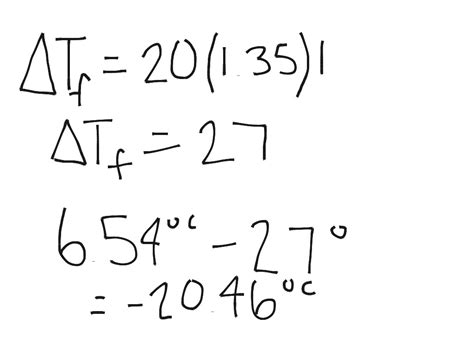 ΔTf = 20(1.35)1
ΔTf = 27
6.54°C - 27°
= -20.46°C